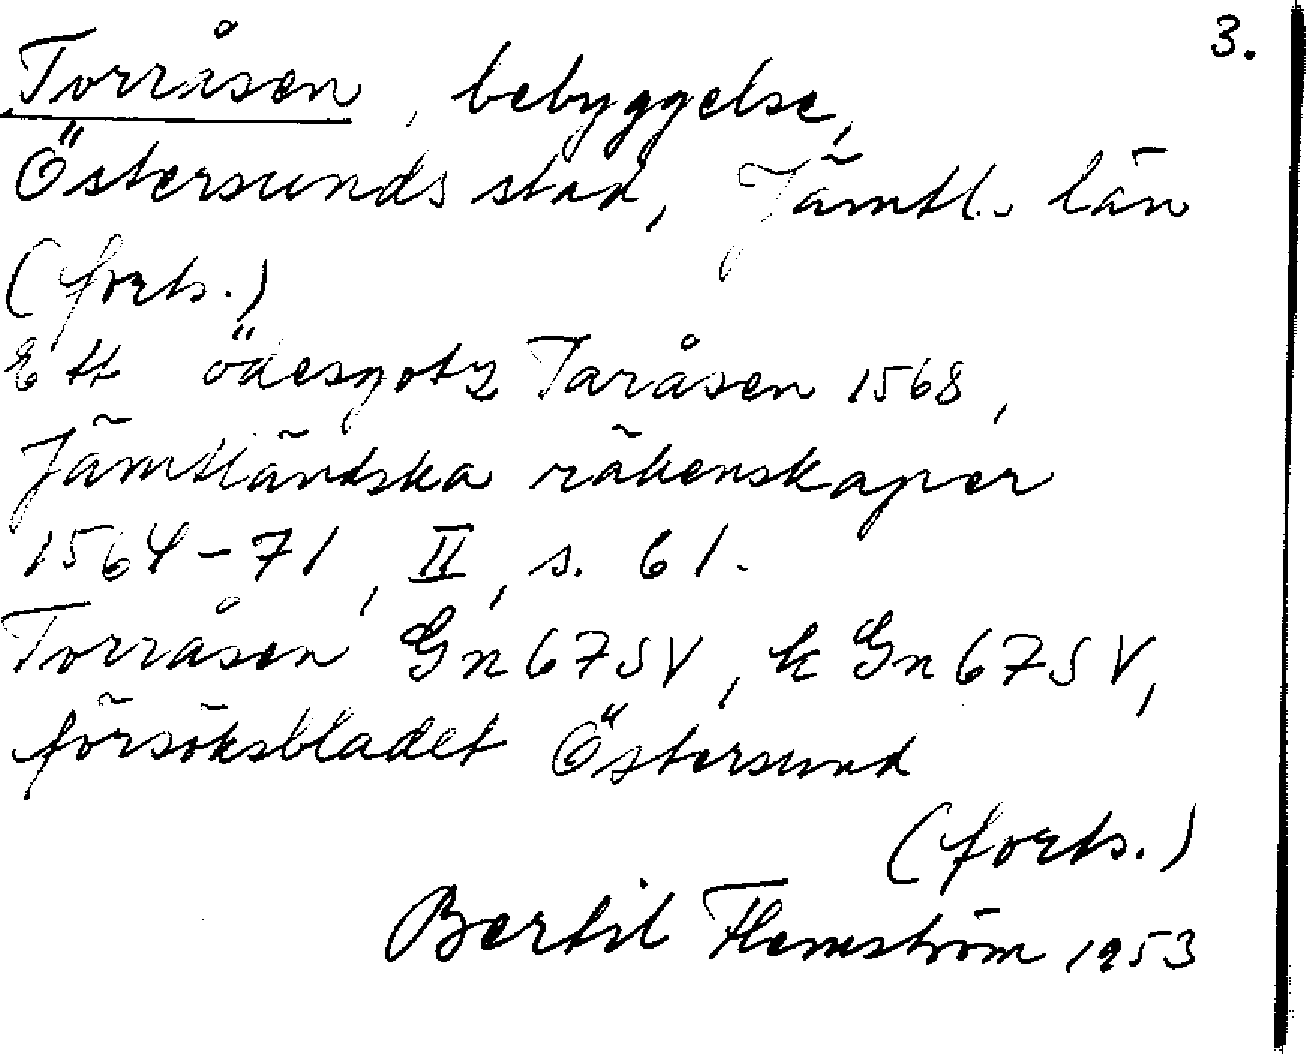 3.
Torråsen, bebyggelse,
Östersunds stad, Jämtl. län
(forts.)
Ett ödesgotz Taråsen 1568,
Jämtländska räkenskaper
1564-71, II, s. 61.
Torråsen Gn 67 SV, k Gn 67 SV,
försöksbladet Östersund
(forts.)
Bertil Flemström 1953